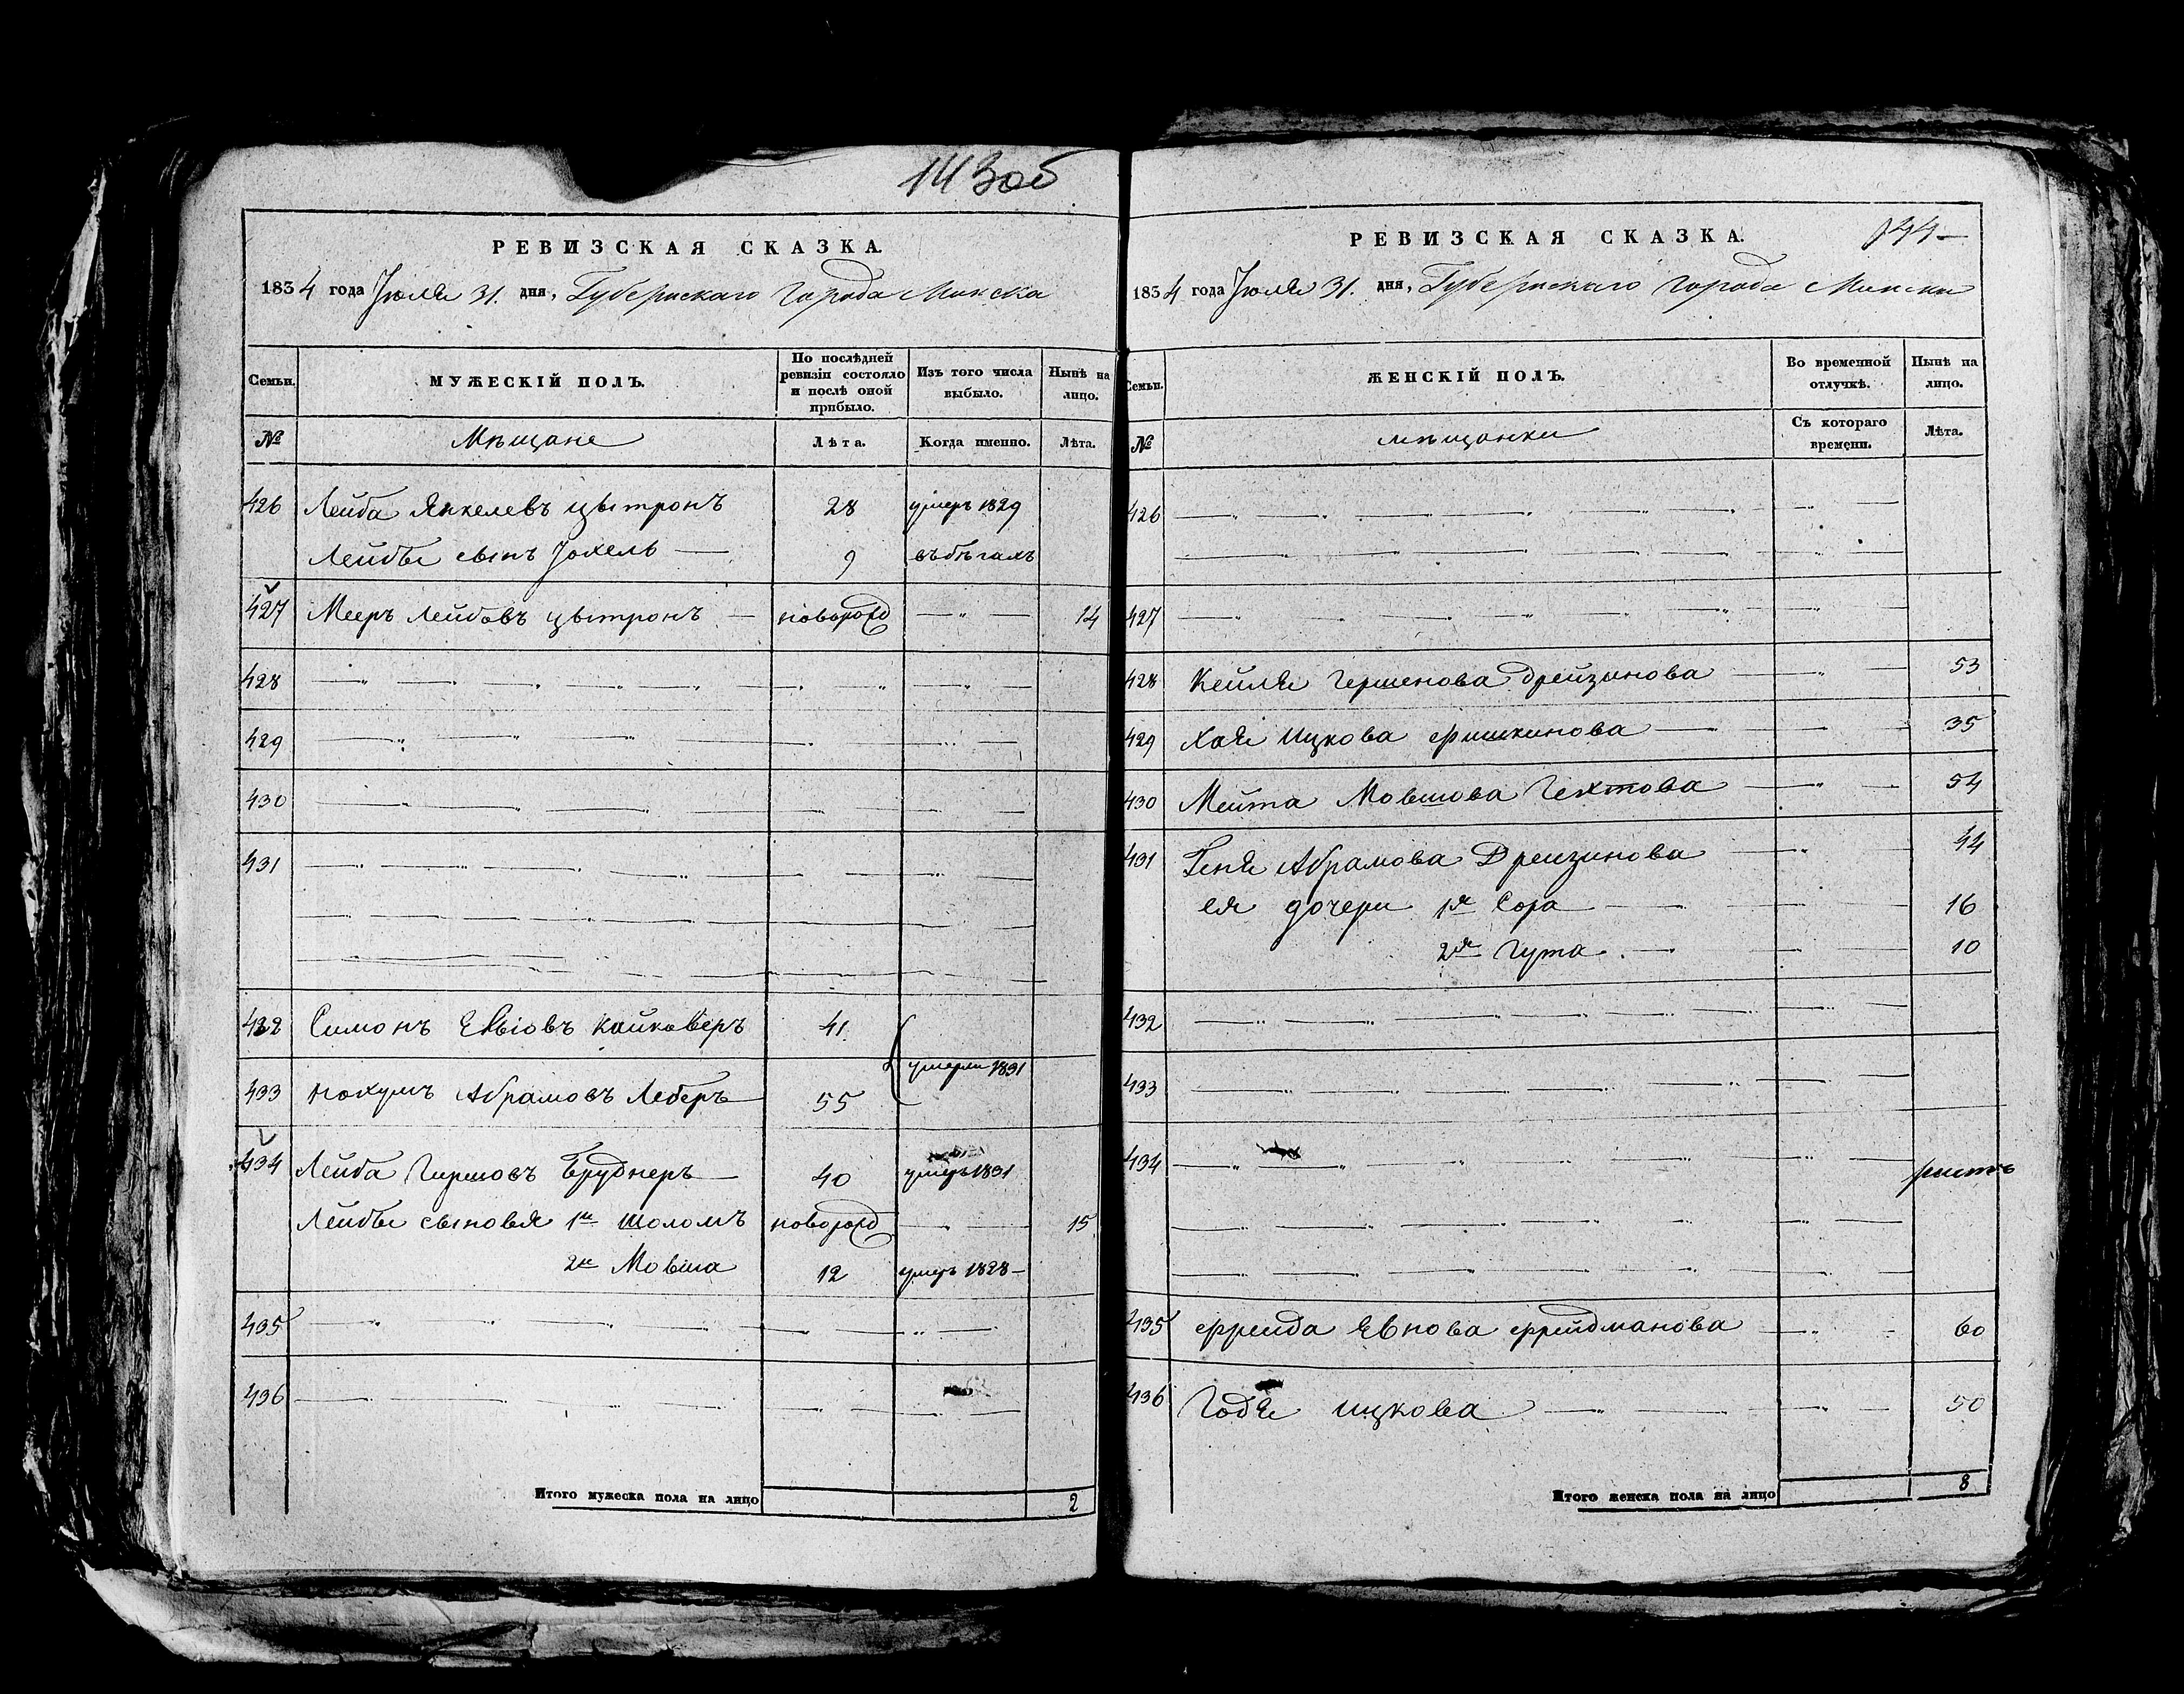 143об
РЕВИЗСКАЯ СКАЗКА.
1834 года Іюля 31. дня, Губернскаго Города Минска
Семьи.
МУЖЕСКІЙ ПОЛЪ.
По послѣдней ревизіи состояло и послѣ оной прибыло.
Изъ того числа выбыло.
Нынѣ на лицо.
№
Мѣщане
Лѣта.
Когда именно.
Лѣта.
426 Лейба Янкелевъ цытронъ 28 умеръ 1829
Лейбы сынъ Іохель 9 въ бѣгахъ
427 Мееръ Лейбовъ цытронъ новорожд 14
428
429
430
431
432 Симонъ 41
433 Нохумъ Абрамовъ Леберъ 55 умерли 1831
434 Лейба Гиршовъ Бруднеръ 40 умеръ 1831
Лейбы сыновья 1й Шоломъ новорожд 15
2й Мовша 12 умеръ 1828
435
436
Итого мужеска пола на лицо 2
144
РЕВИЗСКАЯ СКАЗКА.
1834 года Іюля 31. дня, Губернскаго города Минска
Семьи.
ЖЕНСКІЙ ПОЛЪ.
Во временной отлучкѣ.
Нынѣ на лицо.
№
мѣщанки
Съ котораго времени.
Лѣта.
426
427
428 Кейля Гершенова Дрейзинова 53
429 Хая Ицкова Фишкинова 35
430 Мейта Мовшова Гехтова 54
431 Геня Абрамова Дрейзинова 44
ея дочери 1я Сора 16
2я Гута 10
432
433
434
435 Фрейда Евнова Фрейдманова 60
436 Годя Ицкова 50
Итого женска пола на лицо 8